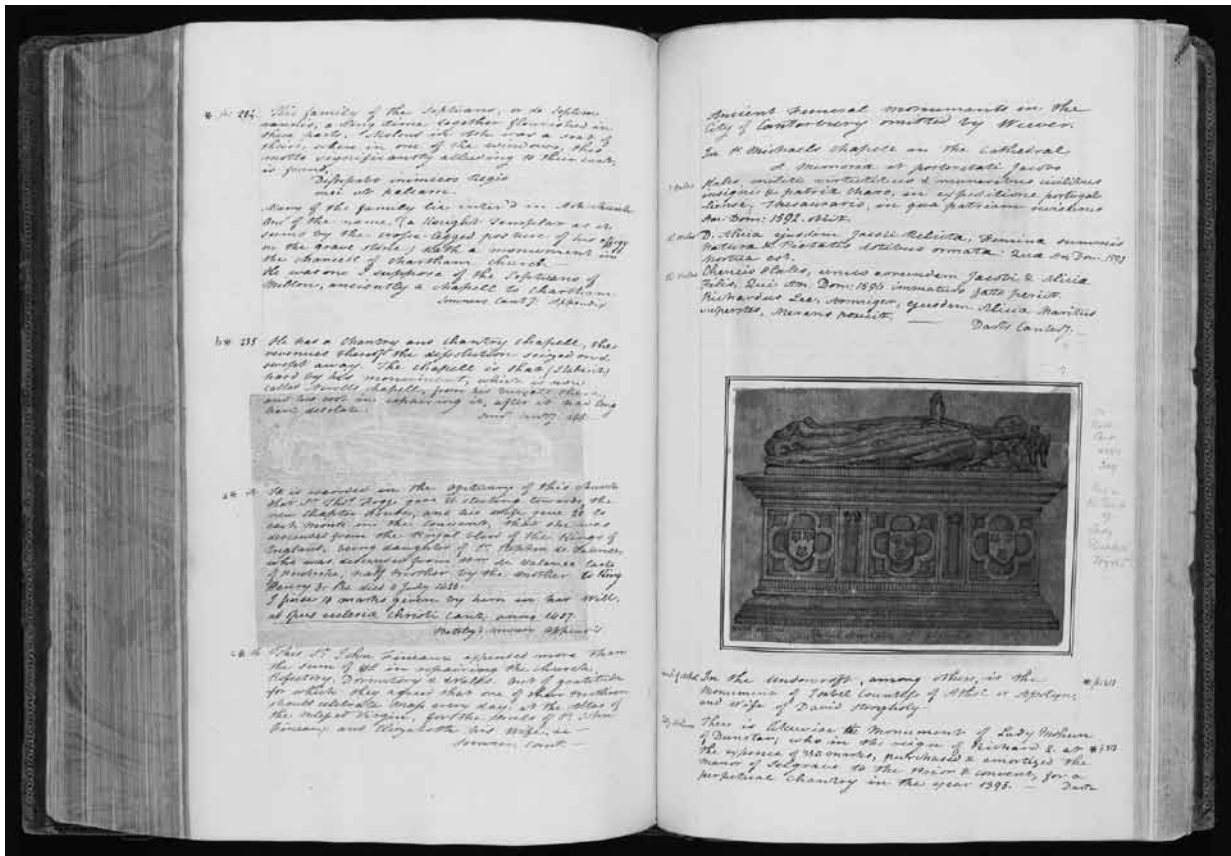 * p. 234. This family of the Septuans, or de Septem
vannis, a long time together flourished in
these parts. Molens in Ash was a seat of
theirs, where in one of the windows, this
motto significantly alluding to their coat,
is found,
Dissipabo inimicos Regis
mei ut paleam.
Many of the family lie interr'd in Ash church
One of the name (a Knight Templar as it
seems by the cross-legged posture of his effigy
on the grave stone) hath a monument in
the chancell of Chartham church.
He was one I suppose of the Septuans of
Milton, anciently a chapell to Chartham.
Somners Canty. Appendix
b* 235 He has a Chantry and chantry chapell, the
revenues thereof the dissolution seized and
swept away. The chapell is that
hard by his monument, which is now
called Nevills chapell, from his buryall there,
and his cost in repairing it, after it had long
been desolate.
a* It is recorded in the Obituary of this church
that Sr. Thos. Fogge gave sterling towards the
new Chapter house, and his wife gave 20 to
each monk in the Convent, that she was
descended from the Royal blood of the Kings of
England, being daughter of Sr. Stephen de Valence,
who was descended from de Valence Earle
of Pembroke, half brother by the mother to King
Henry 3. He died 9 July
I finde 10 marks given by him in his Will,
ad opus ecclesia Christi Cant, anno 1407.
appendix
c* This Sr. John Fineaux expended more than
the sum of in repairing the church,
Refectory, Dormitory & Walls. Out of gratitude
for which they agreed that one of their brethren
should celebrate Mass every day, at the Altar of
the blessed Virgin, for the souls of Sr. John
Fineaux and Elizabeth his Wife, &c
Somners Cant.
Ancient Funeral monuments in the
City of Canterbury omitted by Weever.
In St Michaels Chapell in the Cathedral
Memoria et posteritati Jacobi
Hales militis virtutibus & muneribus civilibus
insignis & patriæ charo, in expeditione portugal
liense, Thesaurario, in qua patriam revisens
An: Dom: 1592. obiit.
D. Alicia ejusdem Jacobi Relicta, Femina summis
natura & Pietatis dotibus ornata: Quæ An Dom: 1592
mortua est.
Cheneis Hales, unius eorundem Jacobi & Alicia
Filii, Qui An. Dom: 1596 immaturo fato periit.
Richardus Lee, Armiger, ejusdem Alicia Maritus
superstes, Mærens posuit,
Darts Canterby. —
In the Undercroft, among others, is the
Monument of Isabel Countess of Athol
and Wife of David
There is likewise the Monument of Lady Mohun
of Dunstar, who in the reign of Richard 2. at
the expence of 350 marks, purchased & amortized the
manor of Selgrave to the Prior & convent, for a
perpetual Chantry in the year 1395. — Darts